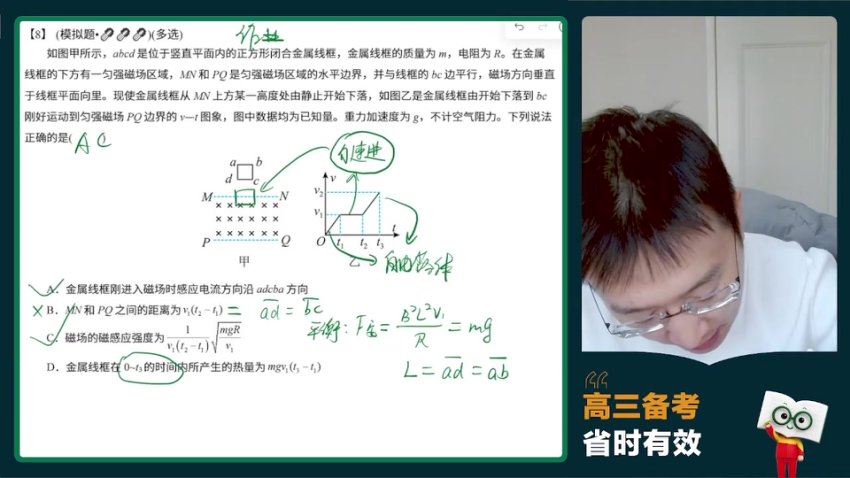 【8】 (模拟题•)(多选)
作业
如图甲所示，abcd是位于竖直平面内的正方形闭合金属线框，金属线框的质量为m，电阻为R。在金属
线框的下方有一匀强磁场区域，MN和PQ是匀强磁场区域的水平边界，并与线框的bc边平行，磁场方向垂直
于线框平面向里。现使金属线框从MN上方某一高度处由静止开始下落，如图乙是金属线框由开始下落到bc
刚好运动到匀强磁场PQ边界的v—t图象，图中数据均为已知量。重力加速度为g，不计空气阻力。下列说法
正确的是( AC
匀速进
a b
d c
M N
P Q
甲
v
v₂
v₁
O t₁ t₂ t₃ t
乙
自由落体
A．金属线框刚进入磁场时感应电流方向沿adcba方向
B．MN和PQ之间的距离为v₁(t₂－t₁) = ad = bc
平衡：F安 = B²L²V₁/R = mg
C．磁场的磁感应强度为 1/(v₁(t₂－t₁)) √(mgR/v₁)
L = ad = ab
D．金属线框在0~t₃的时间内所产生的热量为mgv₁(t₃－t₁)
高三备考
省时有效